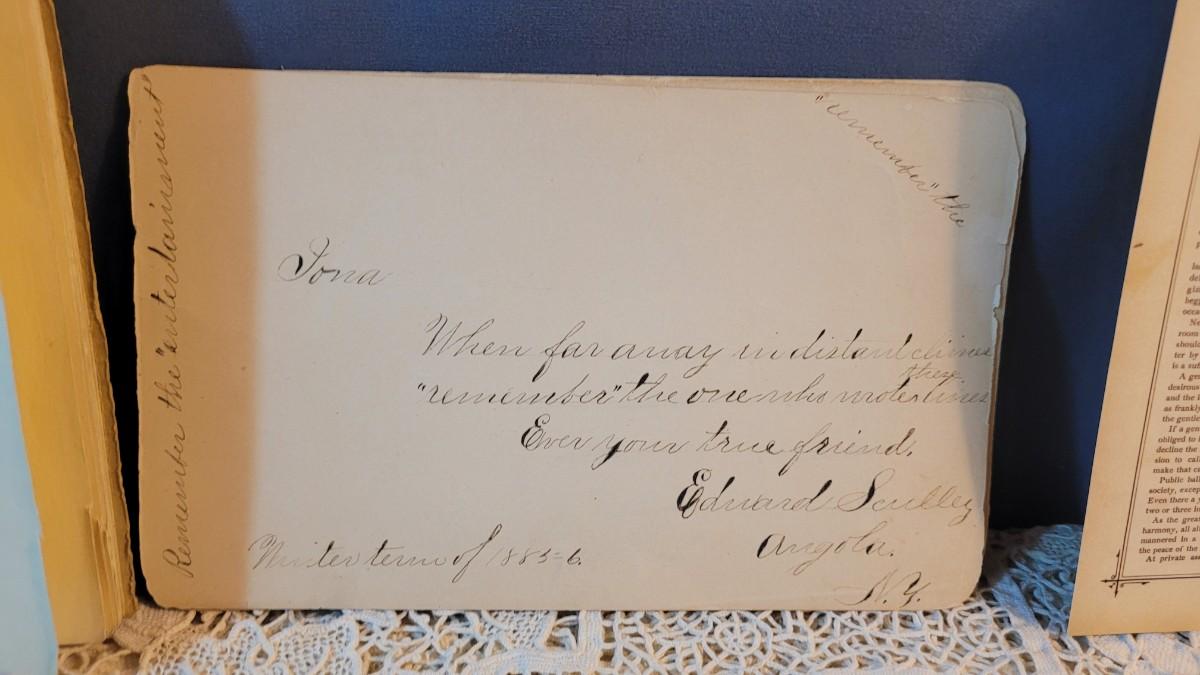 Remember the "entertainment
"remember" the
Iona
When far away in distant climes
"remember" the one who wrote these lines
Ever your true friend.
Edward Sculley
Angola.
N.Y.
Winter term of 1885=6.
room
should
ter by
is a suf
A gen
desirous
and the l
as frankly
the gentle
If a gen
obliged to
decline the
sion to call
make that ca
Public ball
society, excep
Even there a y
two or three in
As the great
harmony, all al
mannered in a
the peace of the
At private ass